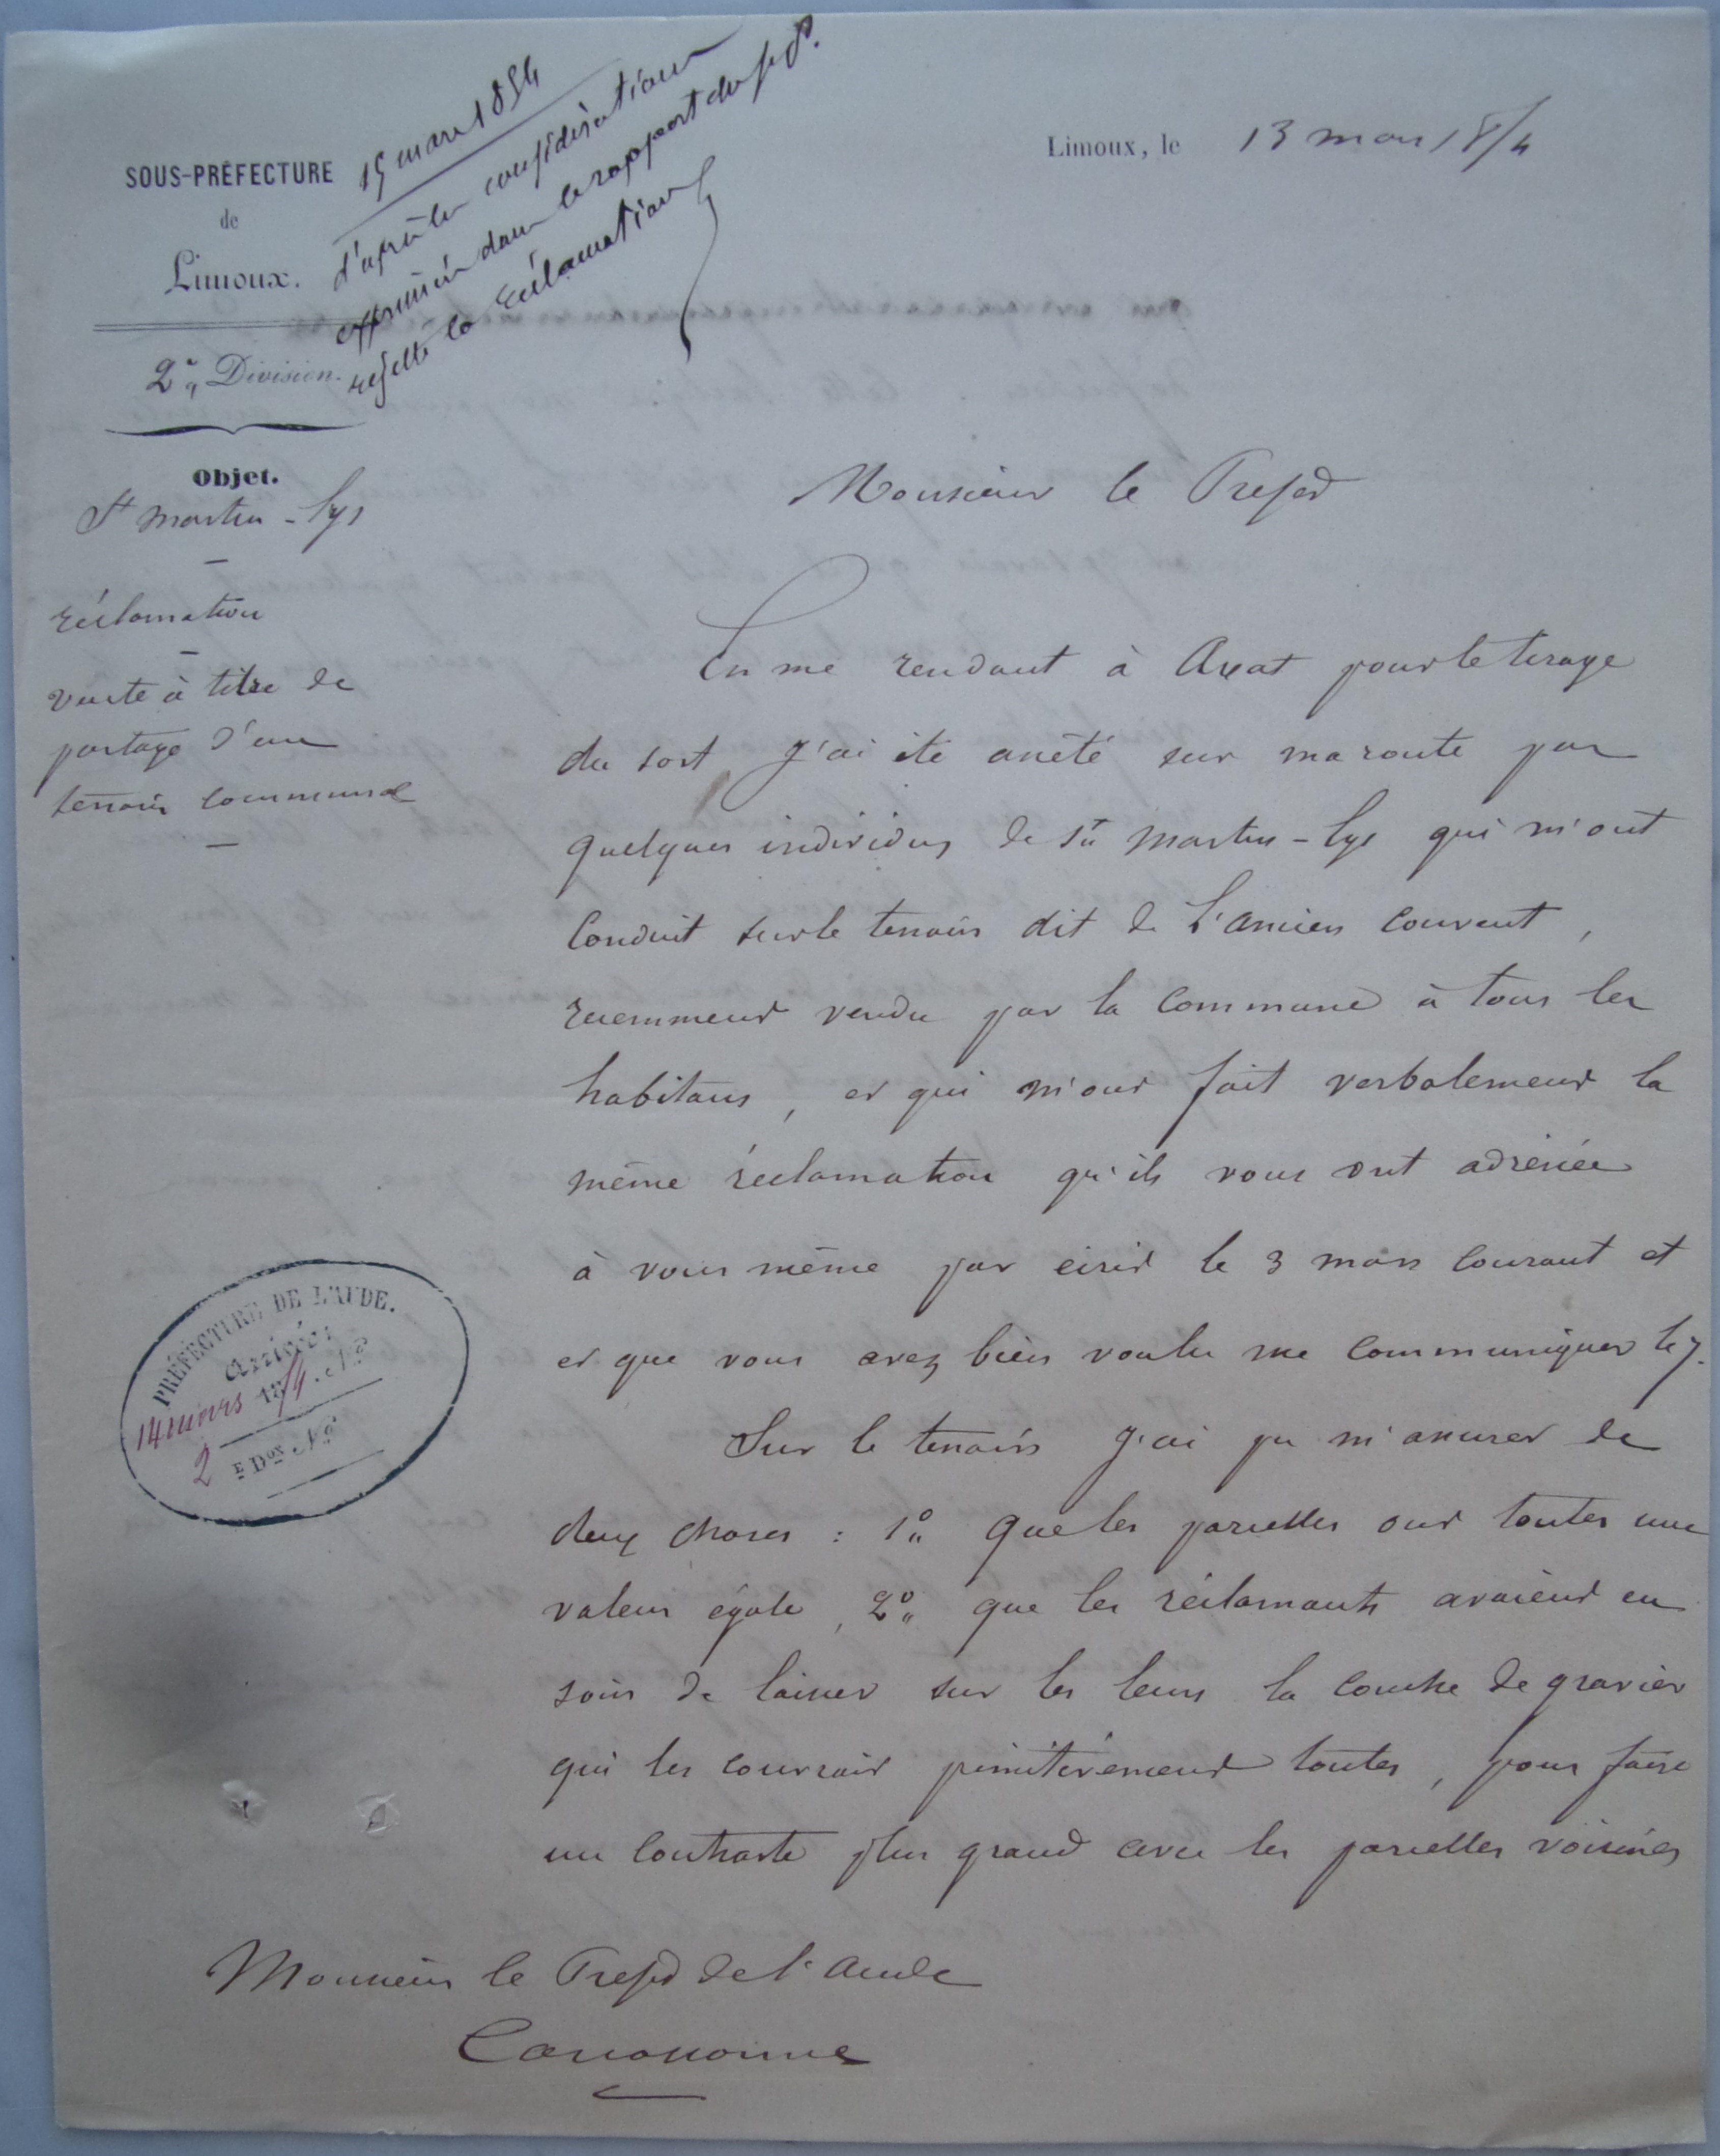 15 mars 1854
d'après les considérations
exprimées dans le rapport du
rejetté la réclamation
SOUS-PRÉFECTURE
de
Limoux.
2e Division.
Objet.
St Martin-Lys
réclamation
vente à titre de
partage d'un
terrain communal
Limoux, le 13 mars 1854
Monsieur le Préfet
En me rendant à Axat pour le tirage
du sort j'ai été arrêté sur ma route par
quelques individus de St Martin-Lys qui m'ont
conduit sur le terrain dit de l'ancien couvent,
recemment vendu par la commune à tous les
habitans, et qui m'ont fait verbalement la
même réclamation qu'ils vous ont adressée
à vous même par écrit le 3 mars courant et
et que vous avez bien voulu me communiquer le 7.
Sur le terrain j'ai pu m'assurer de
deux choses : 1° que les parcelles ont toutes une
valeur égale, 2° que les réclamants avaient eu
soin de laisser sur les leurs la couche de gravier
qui les couvrait primitivement toutes, pour faire
un contraste plus grand avec les parcelles voisines
PRÉFECTURE DE L'AUDE.
Arrivée:
14 mars 1854. No
2 E Don No
Monsieur le Préfet de l'Aude
Carcassonne